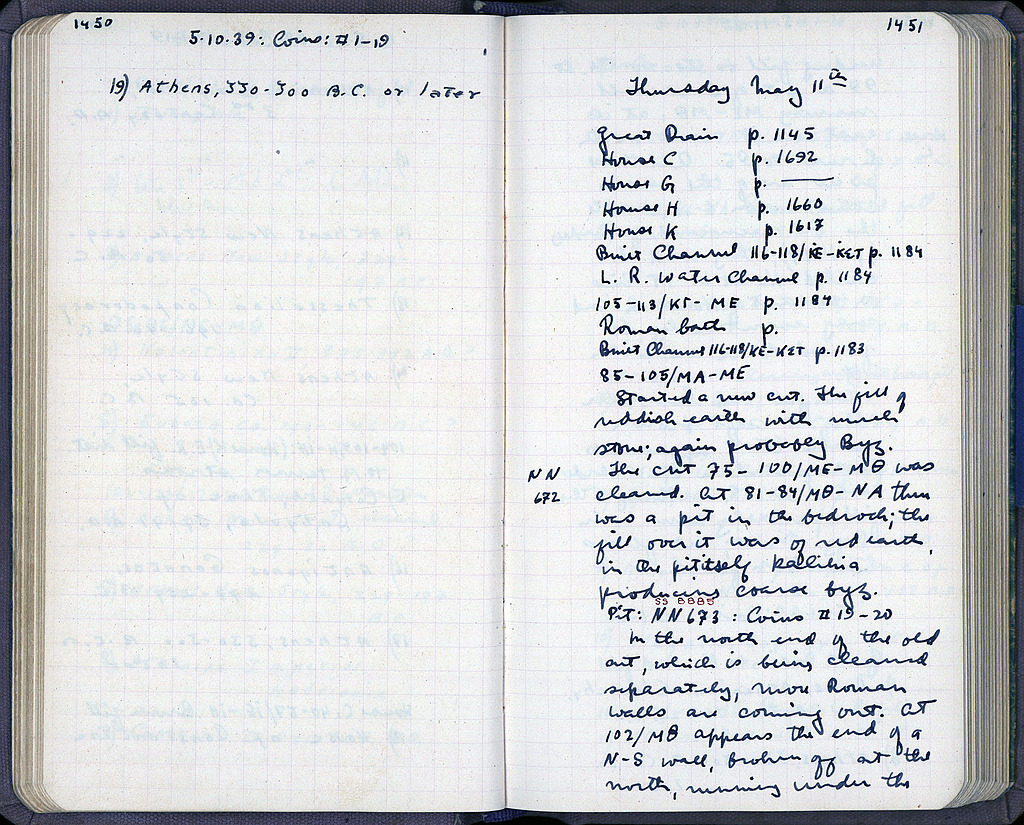 1450
5.10.39: Coins: #1-19
19) Athens, 330-300 B.C. or later
1451
Thursday May 11th
Great Drain p. 1145
House C p. 1692
House G p. ———
House H p. 1660
House K p. 1617
Built Channel 116-118/ΚΕ-ΚΣΤ p. 1184
L. R. Water Channel p. 1184
105-113/ΚΓ-ΜΕ p. 1184
Roman bath p.
Built Channel 116-118/ΚΕ-ΚΣΤ p. 1183
85-105/ΜΑ-ΜΕ
Started a new cut. The fill of
reddish earth with much
stone; again probably Byz.
ΝΝ 672
The cut 75-100/ΜΕ-ΜΘ was
cleaned. At 81-84/ΜΘ-ΝΑ there
was a pit in the bedrock; the
fill over it was of red earth,
in the pit itself kallilia
producing coarse byz.
SS 8885
Pit: ΝΝ 673: Coins #19-20
In the north end of the old
cut, which is being cleaned
separately, more Roman
walls are coming out. At
102/ΜΘ appears the end of a
N-S wall, broken off at the
north, running under the